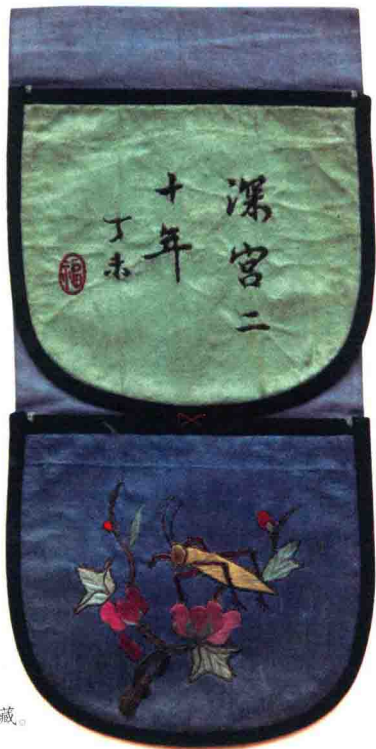 深宫二
十年
丁未
福
藏。